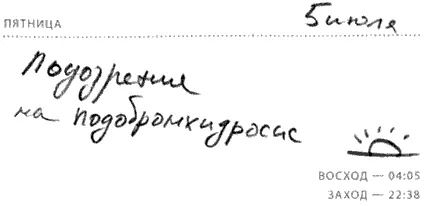 ПЯТНИЦА
5 июля
Подозрения
на подобромхидросис
ВОСХОД — 04:05
ЗАХОД — 22:38